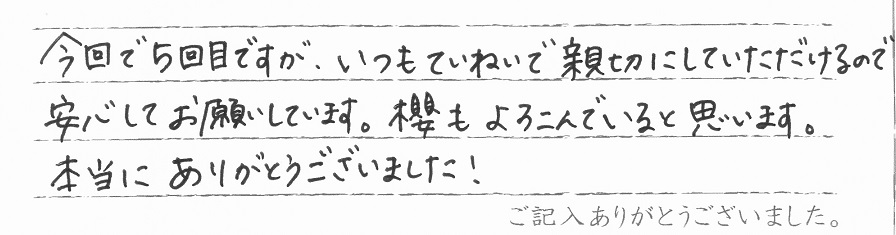 今回で5回目ですが、いつもていねいで親切にしていただけるので
安心してお願いしています。櫻もよろこんでいると思います。
本当にありがとうございました!
ご記入ありがとうございました。